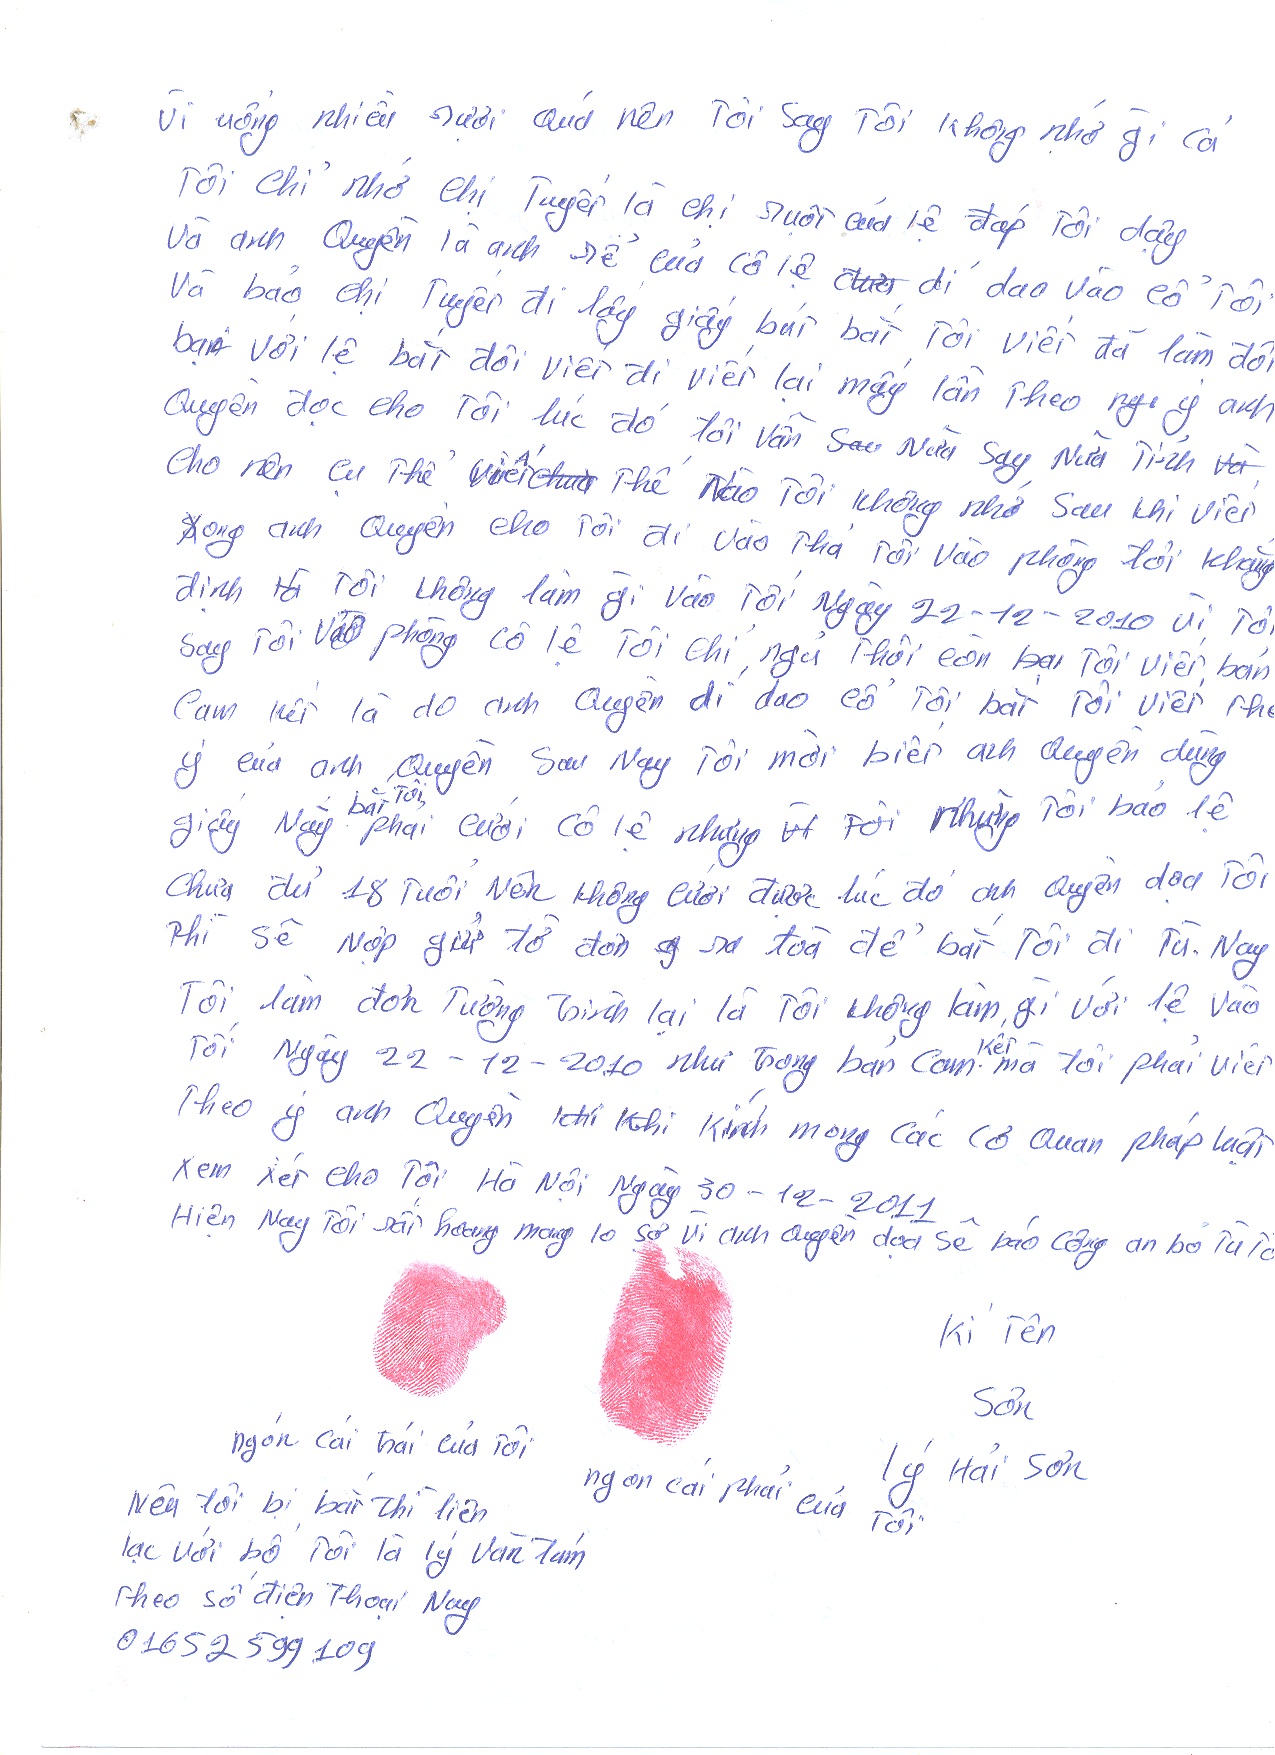 Vì uống nhiều rượi quá nên Tôi Say Tôi không nhớ gì cả
Tôi chỉ nhớ chị Tuyết là chị ruột của lệ đáp Tôi dậy
Và anh Quyền là anh rể của cô lệ dí dao vào cổ Tôi
Và bảo chị Tuyết đi lấy giấy bút bắt Tôi viết đã làm đôi
bạn với lệ bắt đôi viết đi viết lại mấy lần Theo ý anh
Quyền đọc cho Tôi lúc đó tôi vẫn Nửa Say Nửa Tỉnh
cho nên cụ Thể viết Thế Nào Tôi không nhớ Sau khi viết
Xong anh Quyền cho Tôi đi vào Thả Tôi vào phòng tôi khẳng
định Tôi không làm gì vào Tối Ngày 22-12-2010 Vì Tôi
Say Tôi Vào phòng cô lệ Tôi chỉ ngủ Thôi còn Tôi viết bản
Cam kết là do anh Quyền dí dao cổ Tôi bắt Tôi viết The
ý của anh Quyền Sau Nay Tôi mới biết anh Quyền dùng
giấy Này bắt Tôi phải cưới cô lệ nhưng Tôi Nhưng Tôi bảo lệ
Chưa đủ 18 Tuổi Nên không cưới được lúc đó anh Quyền dọa Tôi
Thì Sẽ Nộp giử tờ đơn ra toà để bắt Tôi đi Tù. Nay
Tôi làm đơn Tường trình lại là Tôi không làm gì với lệ Vào
Tối Ngày 22-12-2010 như trong bản Cam kết mà tôi phải viết
Theo ý anh Quyền Khi Kính mong Các Cơ Quan pháp luật
Xem xét cho Tôi Hà Nội Ngày 30-12-2011
Hiện Nay Tôi rất hoang mang lo sợ Vì anh Quyền dọa Sẽ báo Công an bỏ Tù Tô
Kí Tên
Sơn
Lý Hải Sơn
ngón cái trái của Tôi
ngon cái phải của Tôi
Nếu tôi bị bắt Thì liên
lạc với bố Tôi là lý Văn tám
Theo số điện Thoại Nay
01652599109